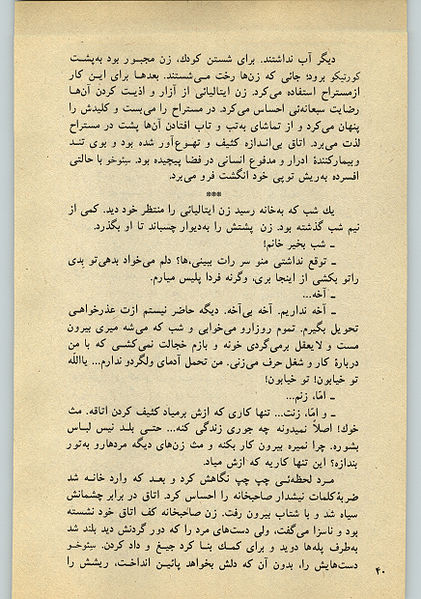 دیگر آب نداشتند. برای شستن کودك، زن مجبور بود به‌پشت
کورنیکو برود؛ جائی که زن‌ها رخت می‌شستند. بعدها برای این کار
ازمستراح استفاده می‌کرد. زن ایتالیائی از آزار و اذیت کردن آن‌ها
رضایت سبعانه‌ئی احساس می‌کرد. در مستراح را می‌بست و کلیدش را
پنهان می‌کرد و از تماشای به‌تب و تاب افتادن آن‌ها پشت در مستراح
لذت می‌برد. اتاق بی‌اندازه کثیف و تهوع‌آور شده بود و بوی تنـد
وبیمارکنندهٔ ادرار و مدفوع انسانی در فضا پیچیده بود. سِنوخو با حالتی
افسرده به‌ریش توپی خود انگشت فرو می‌برد.
***
یك شب که به‌خانه رسید زن ایتالیائی را منتظر خود دید. کمی از
نیم شب گذشته بود. زن پشتش را به‌دیوار چسباند تا او بگذرد.
ـ شب بخیر خانم!
ـ توقع نداشتی منو سر رات ببینی،ها؟ دلم می‌خواد بدهی‌تو بدی
راتو بکشی از اینجا بری، وگرنه فردا پلیس میارم.
ـ آخه...
ـ آخه نداریم. آخه بی‌آخه. دیگه حاضر نیستم ازت عذرخواهی
تحویل بگیرم. تموم روزارو می‌خوابی و شب که می‌شه میری بیرون
مست و لایعقل برمی‌گردی خونه و بازم خجالت نمی‌کشی که با من
دربارهٔ کار و شغل حرف می‌زنی. من تحمل آدمای ولگردو ندارم... یاالله
تو خیابون! تو خیابون!
ـ امّا، زنم...
ـ و امّا، زنت... تنها کاری که ازش برمیاد کثیف کردن اتاقه. مث
خوك! اصلاً نمیدونه چه جوری زندگی کنه... حتـی بلـد نیس لباس
بشوره. چرا نمیره بیرون کار بکنه و مث زن‌های دیگه مردهارو به‌تور
بندازه؟ این تنها کاریه که ازش میاد.
مـرد لحظه‌ئـی چپ چپ نگاهش کرد و بعـد که وارد خانـه شد
ضربهٔ‌کلمات نیشدار صاحبخانه را احساس کرد. اتاق در برابر چشمانش
سیاه شد و با شتاب بیرون رفت. زن صاحبخانه کف اتاق خود نشسته
بود و ناسزا می‌گفت، ولی دست‌های مرد را که دور گردنش دید بلند شد
به‌طرف پله‌ها دوید و برای کمـك بنـا کـرد جیـغ و داد کردن. سِنوخـو
دست‌هایش را، بدون آن که دلش بخواهد پائیـن انداخـت، ریشش را
۴۰